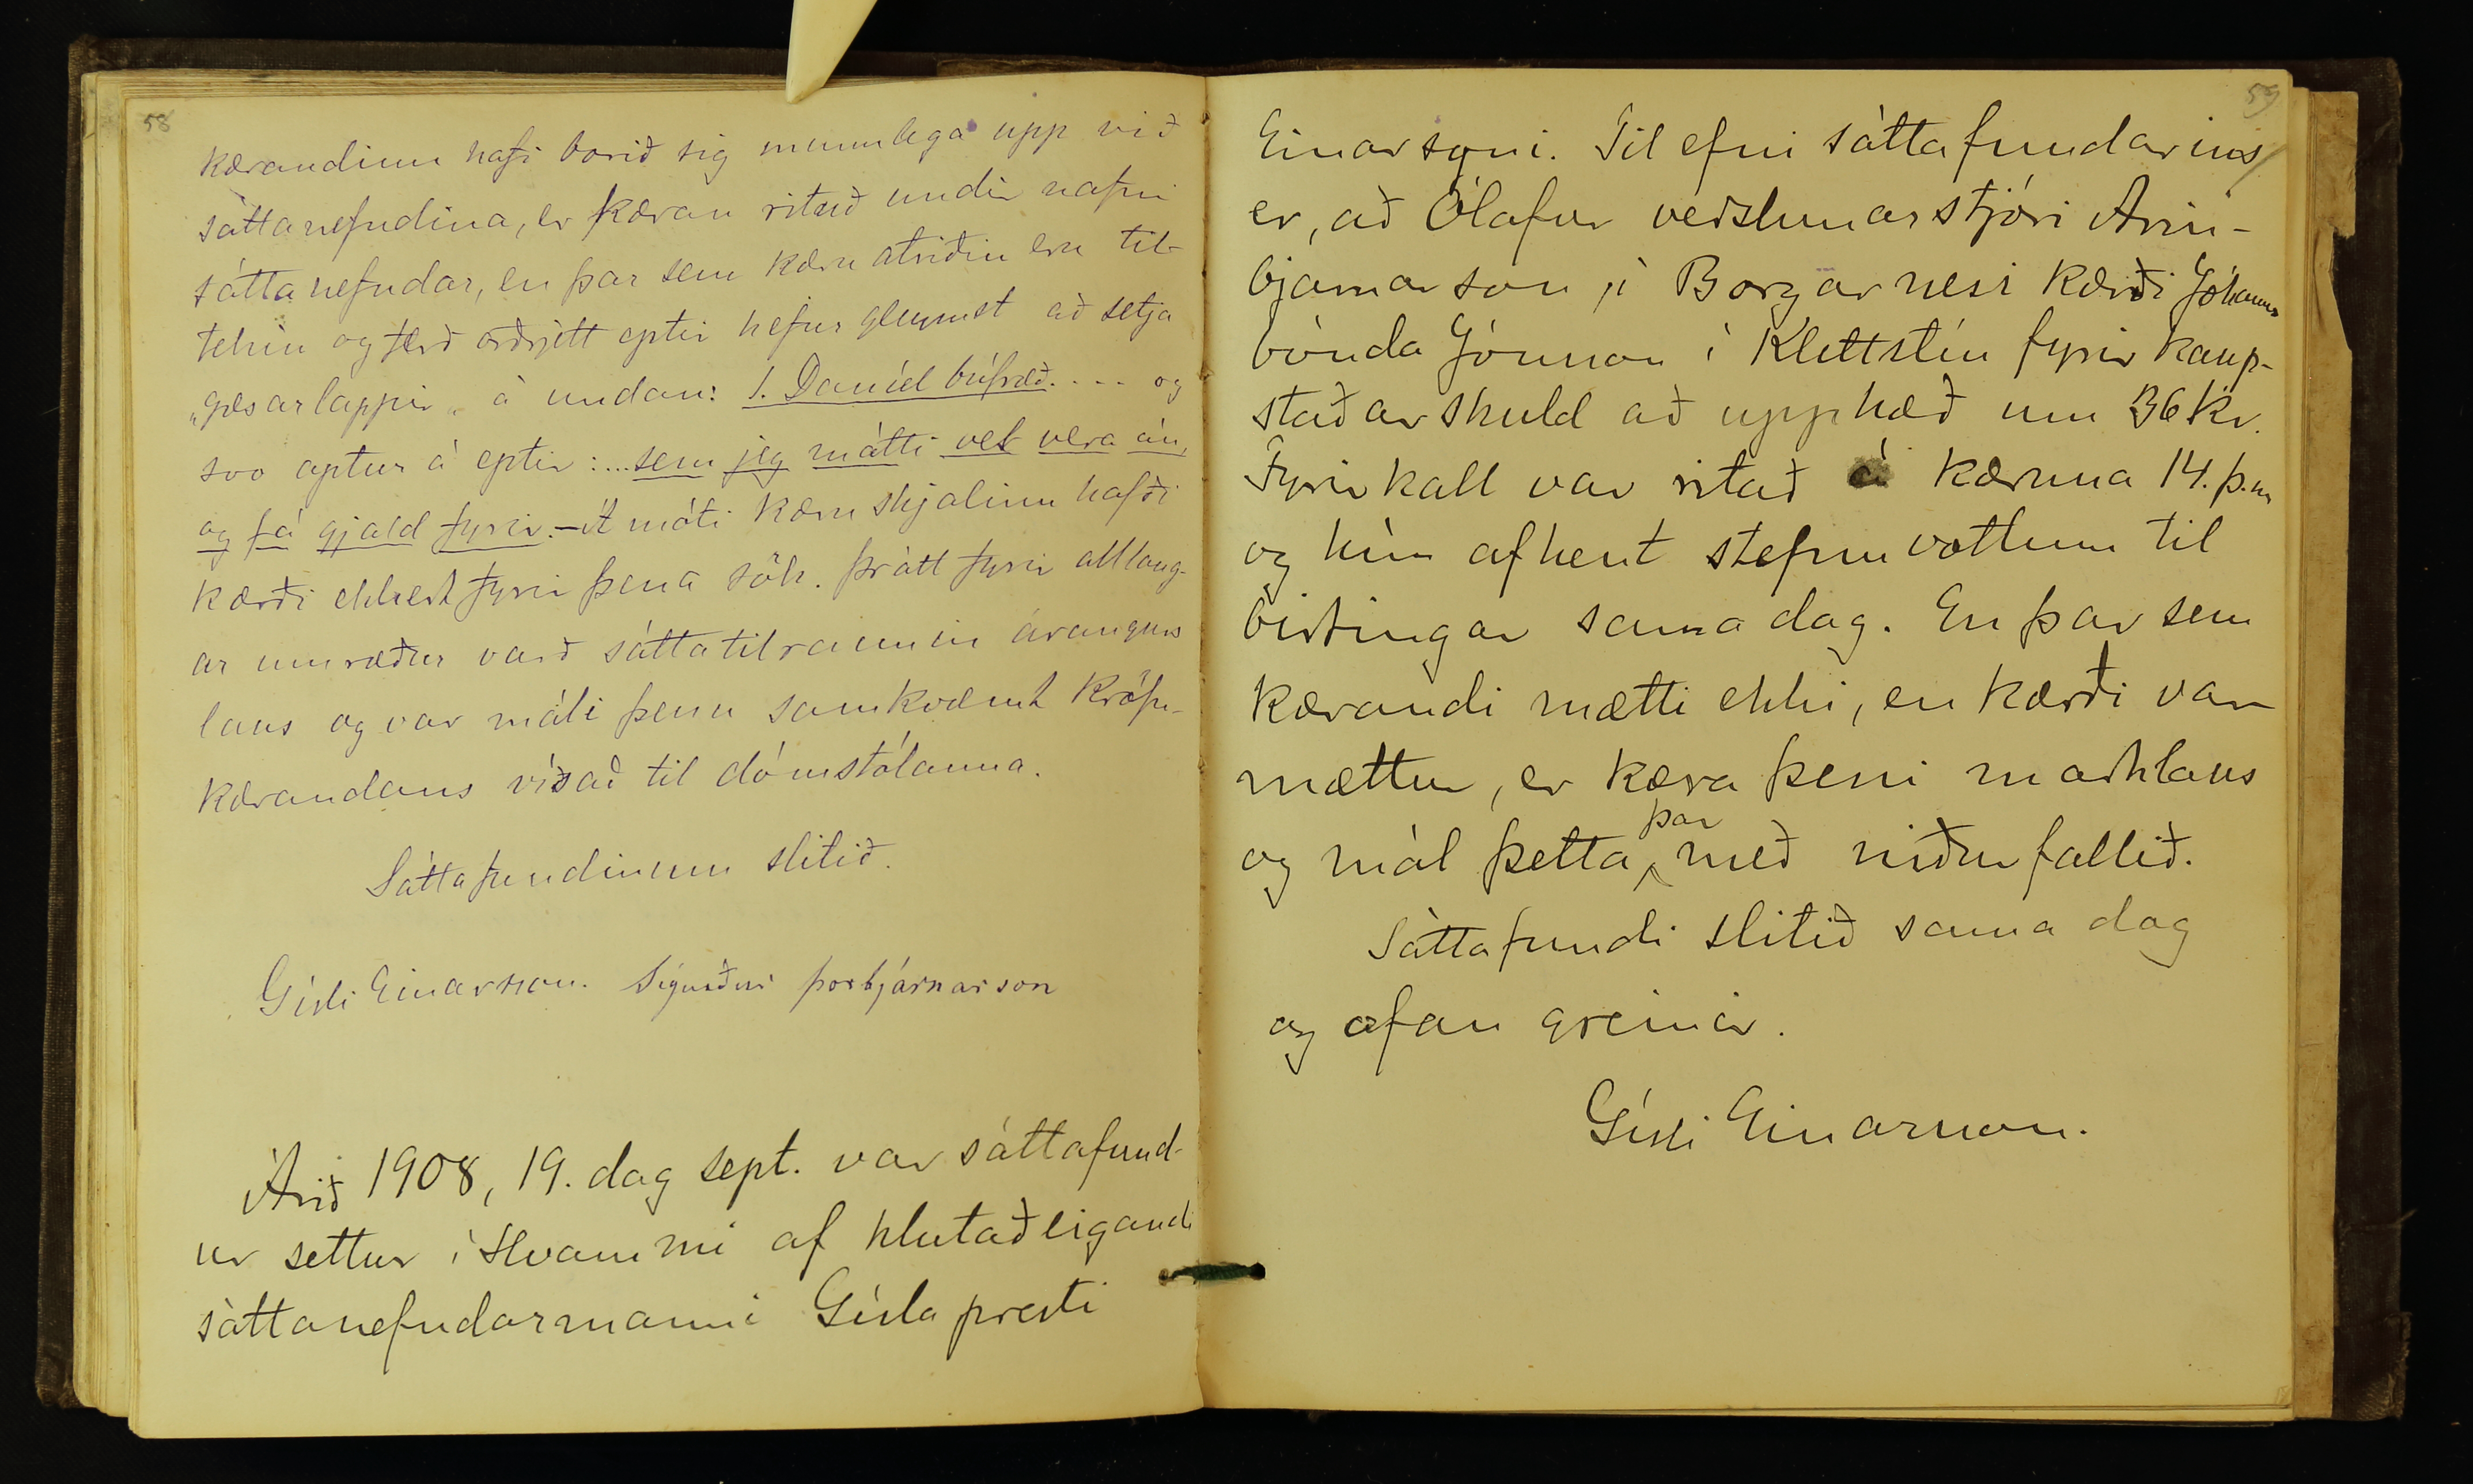 58
kærandinn hafi borið sig munnlega upp við
sáttanefndina, er kæran rituð undir nafni
sáttanefndar, en þar sem kæru atriðin eru til-
tekin og færð orðrjett eptir hefur gleymst að setja
„gæsarlappir„ á undan: 1. Daníel búfræð. . . . og
svo aptur á eptir: ... sem jeg mátti vel vera án,
og fá gjald fyrir. - Á móti kæru skjalinu hafði
kærði ekkert fyrir þena sök. Þrátt fyrir alllang-
ar umræður varð sáttatilraunin árangurs
laus og var máli þenu samkvæmt kröfu-
kærandans vísað til dómstólanna.
Sáttafundinum slitið.
Gísli Einarsson. Sigurður Þorbjarnarson
Árið 1908, 19. dag sept. var sáttafund-
ur settur í Hvammi af hlutaðeigandi
sáttanefndarmanni Gísla presti
59
Einarsyni. Tilefni sáttafundarins
er, að Ólafur verslunarstjóri Arin-
bjarnarson í Borgarnesi kærði Jóhann
bónda Jónsson í Klettstíu fyrir kaup-
staðarskuld að upphæð um 36 kr.
Fyrirkall var ritað á kæruna 14. þ.m
og hún afhent stefnuvottum til
birtingar sama dag. En þar sem
kærandi mætti ekki, en kærði var
mættur, er kæra þeni marklaus
og mál þetta þar með niðurfallið.
Sáttafundi slitið sama dag
og ofan greinir.
Gísli Einarsson.